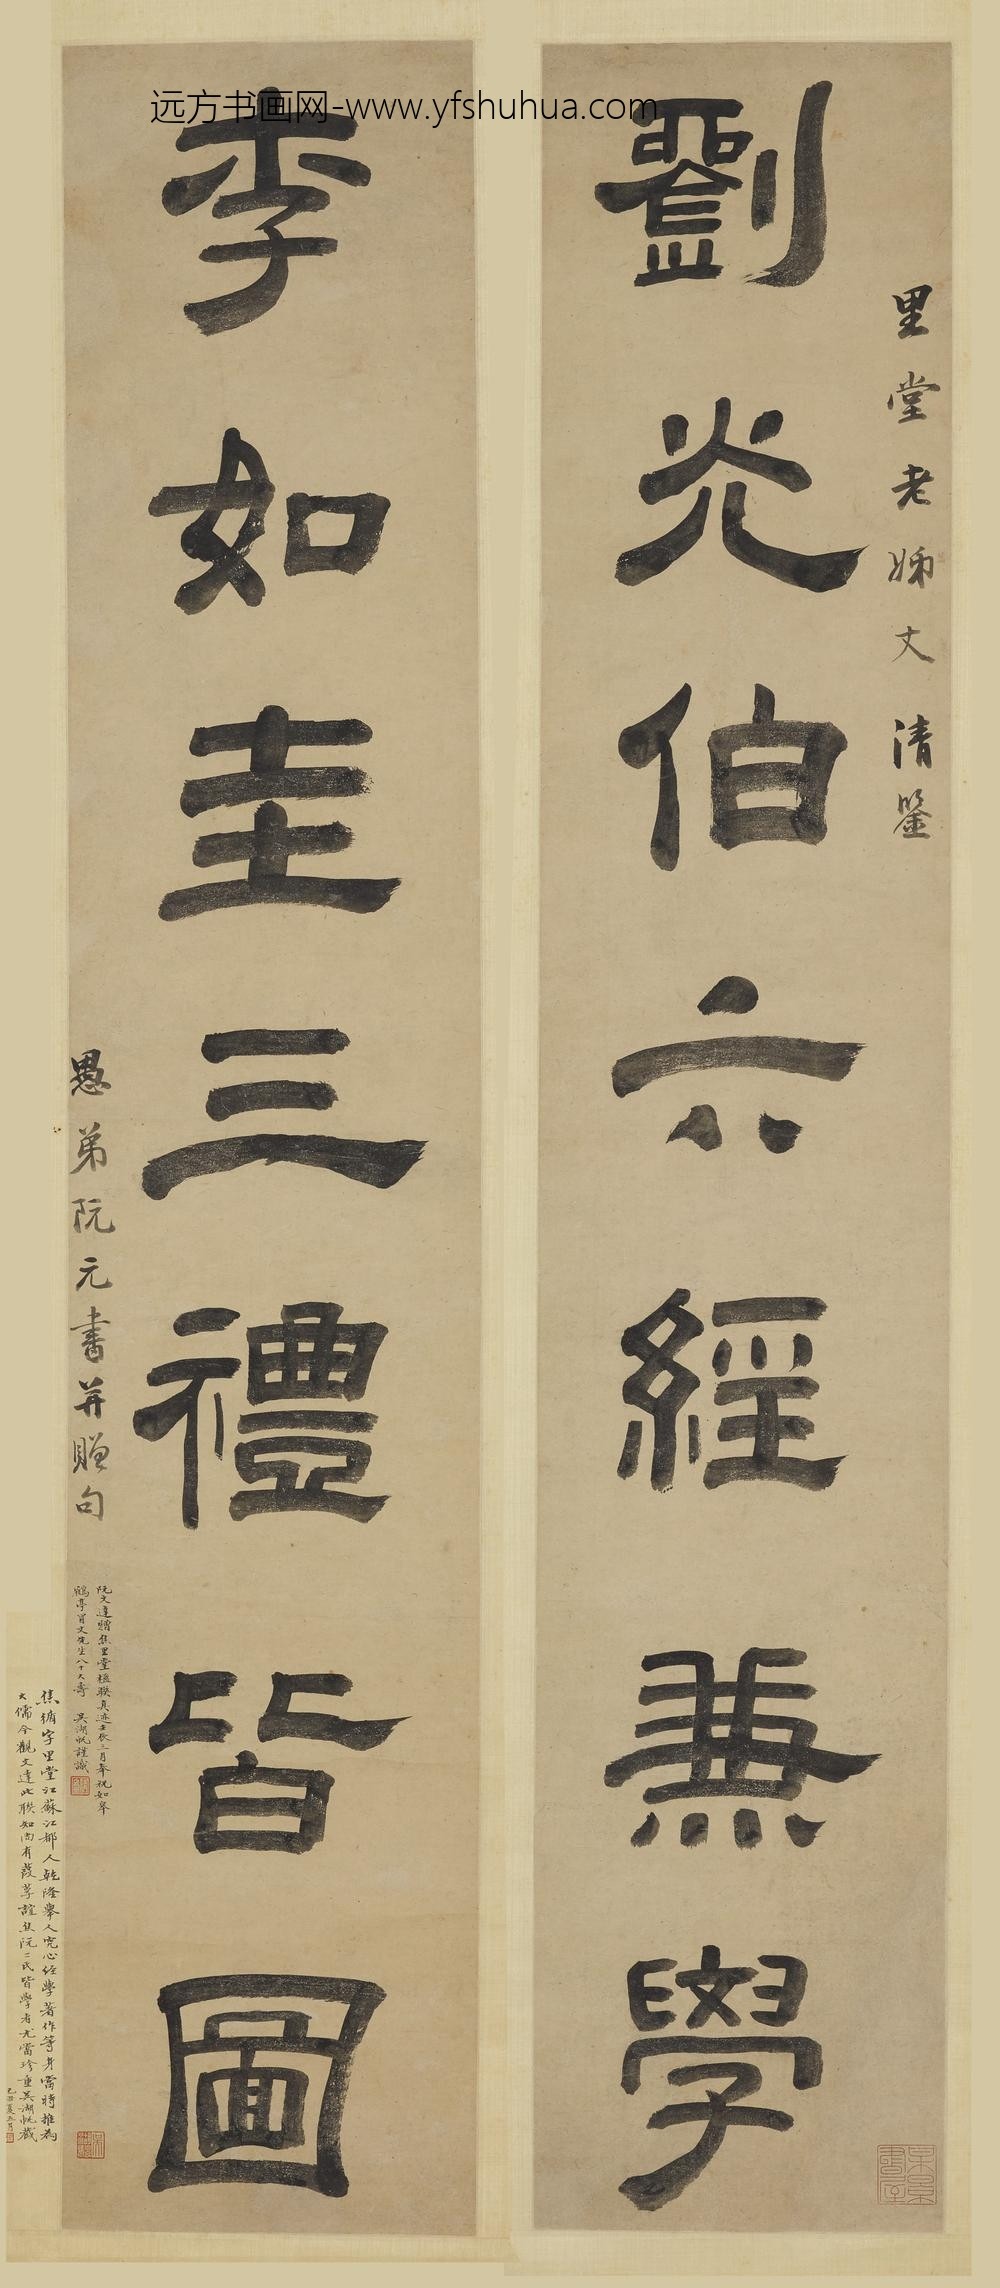 远方书画网-www.yfshuhua.com
里堂老姊丈清鑒
劉光伯六經兼學
李如圭三禮皆圖
愚弟阮元書并贈句
阮文達贈焦里堂楹聯真迹壬辰三月奉祝如皋
鶴亭冒丈先生八十大壽 吳湖帆謹識
焦循字里堂江蘇江都人乾隆舉人究心經學著作等身當時推為
大儒今觀文達此聯知尚有葭莩誼焦阮二氏皆學者尤當珍重吳湖帆藏